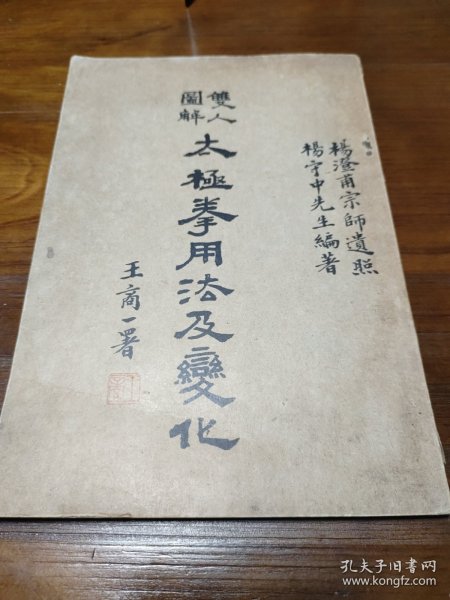 楊澄甫宗師遺照
楊守中先生編著
雙人
圖解
太極拳用法及變化
王商一署
孔夫子旧书网
www.kongfz.com